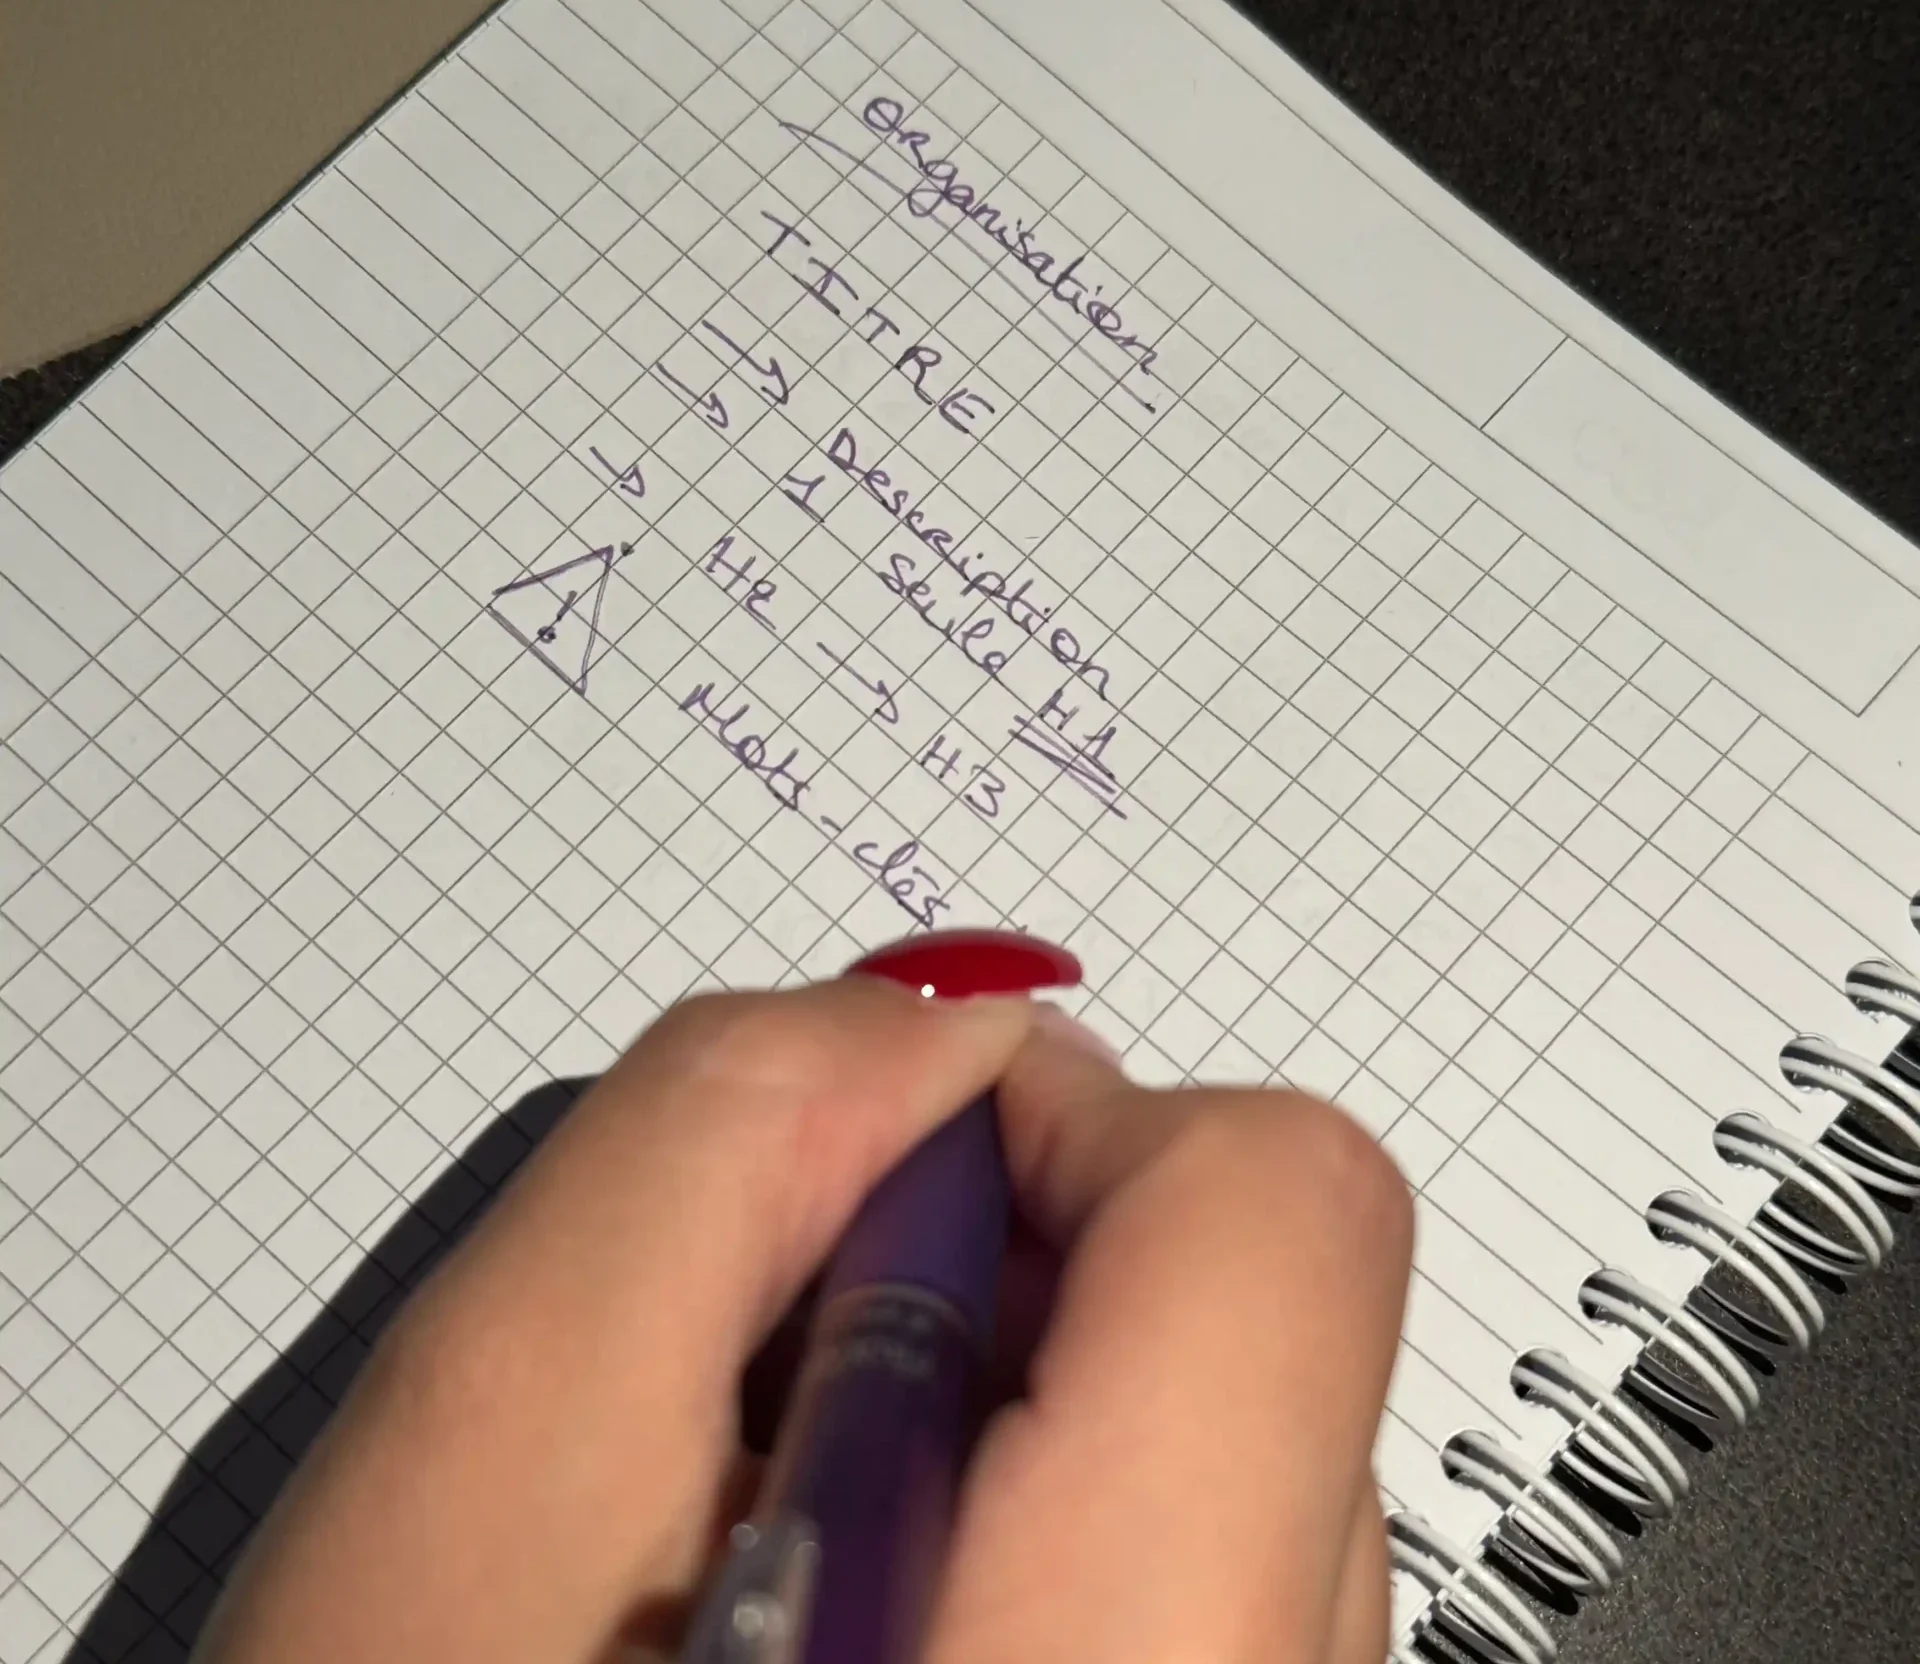 Organisation
TITRE
→ Description
→ 1 seule H1
→ H2 → H3
! Mots-clés